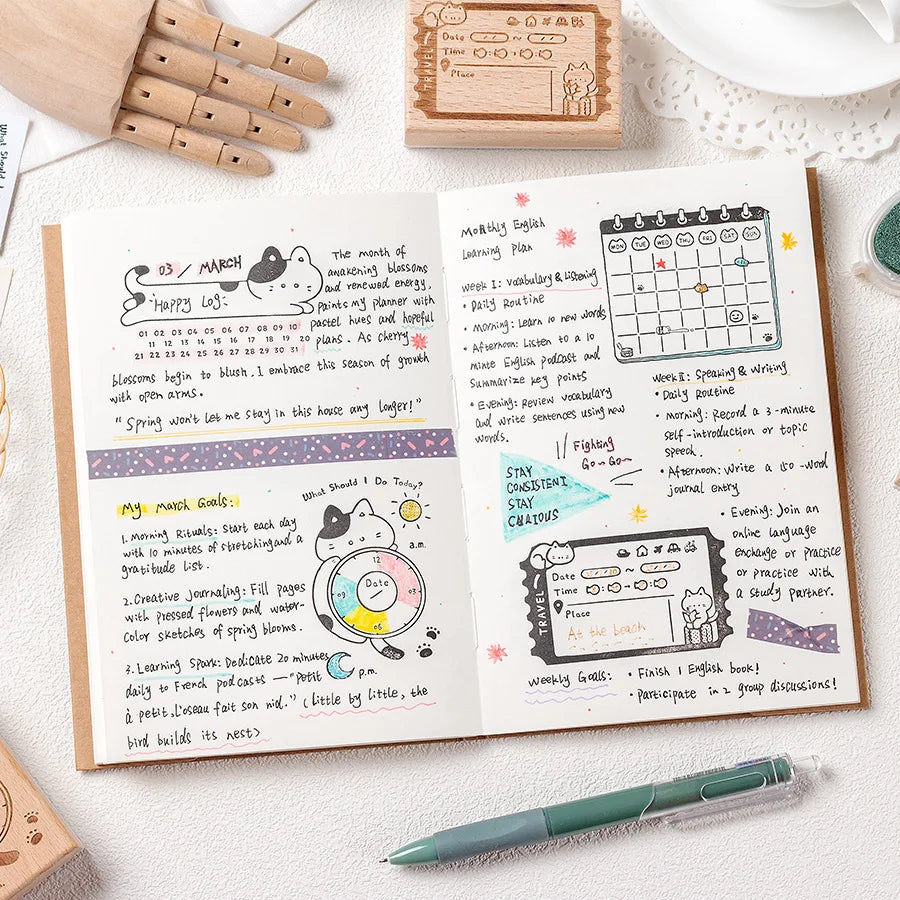 Date ~
Time : :
Place
TRAVEL
What Should I
03 / MARCH
Happy Log
01 02 03 04 05 06 07 08 09 10
11 12 13 14 15 16 17 18 19 20
21 22 23 24 25 26 27 28 29 30 31
The month of
awakening blossoms
and renewed energy,
paints my planner with
pastel hues and hopeful
plans. As cherry
blossoms begin to blush, I embrace this season of growth
with open arms.
"Spring won't let me stay in this house any longer!"
My March Goals:
1. Morning Rituals: Start each day
with 10 minutes of stretching and a
gratitude list.
2. Creative Journaling: Fill pages
with pressed flowers and water-
color sketches of spring blooms.
3. Learning Spark: Dedicate 20 minutes
daily to French podcasts — "Petit
à petit, L'oseau fait son nid." (little by little, the
bird builds its nest>
What Should I Do Today?
a.m.
12
03
06
09
Date
/
p.m.
Monthly English
Learning plan
Week I: Vocabulary & Listening
• Daily Routine
• Morning: Learn 10 new words
• Afternoon: Listen to a 10
minte English podcast and
summarize key points
• Evening: Review vocabulary
and write sentences using new
words.
MON TUE WED THU FRI SAT SUN
Week II: Speaking & Writing
• Daily Routine
• Morning: Record a 3-minute
self-introduction or topic
speech.
• Afternoon: Write a 150-word
journal entry
• Evening: Join an
online language
exchange or practice
or practice with
a study partner.
Fighting
Go~Go~
STAY
CONSISTENT
STAY
CURIOUS
Date ~
Time : :
Place
At the beach
TRAVEL
Weekly Goals:
• Finish 1 English book!
• Participate in 2 group discussions!